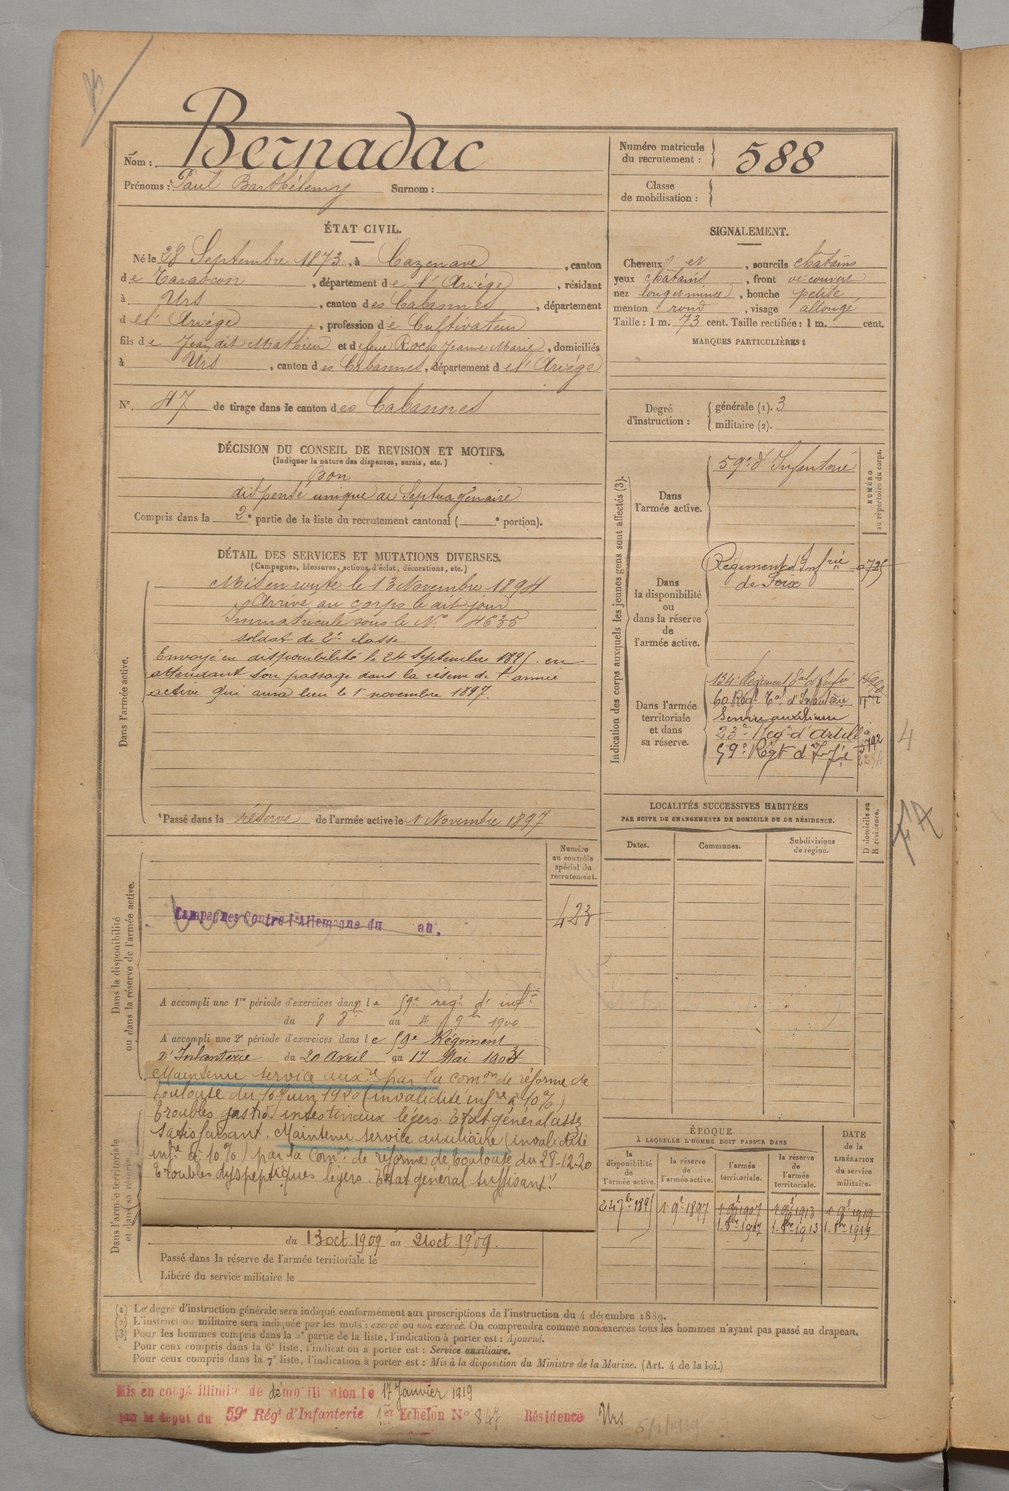 Bernadac
Nom :
Prénoms : Paul Barthélemy Surnom :
Numéro matricule
du recrutement : 588
Classe
de mobilisation :
ÉTAT CIVIL.
Né le 28 Septembre 1873, à Cazenave, canton
de Tarascon, département de l'Ariège, résidant
à Urs, canton des Cabannes, département
de l'Ariège, profession de Cultivateur
fils de Jean dit Mathieu et de feue Roch Jeanne Marie, domiciliés
à Urs, canton des Cabannes, département de l'Ariège
N° 47 de tirage dans le canton des Cabannes
SIGNALEMENT.
Cheveux et, sourcils chatains
yeux chatains, front découvert
nez long et mince, bouche petite
menton rond, visage allongé
Taille : 1 m. 73 cent. Taille rectifiée : 1 m. cent.
MARQUES PARTICULIÈRES :
Degré
d'instruction :
générale (1). 3
militaire (2).
DÉCISION DU CONSEIL DE REVISION ET MOTIFS.
(Indiquer la nature des dispenses, sursis, etc.)
Bon
dispensé unique de Septuagénaire
Compris dans la 2e partie de la liste du recrutement cantonal ( e portion).
DÉTAIL DES SERVICES ET MUTATIONS DIVERSES.
(Campagnes, blessures, actions d'éclat, décorations, etc.)
Dans l'armée active.
Mis en route le 13 Novembre 1894
Arrivé au corps le dit jour
Immatriculé sous le N° 4635
soldat de 2e classe
Envoyé en disponibilité le 24 Septembre 1895 en
attendant son passage dans la réserve de l'armée
active qui aura lieu le 1er novembre 1897
Passé dans la réserve de l'armée active le 1 Novembre 1897
Indication des corps auxquels les jeunes gens sont affectés (3).
NUMÉRO
au répertoire du corps.
Dans
l'armée active.
59e d'Infanterie
Dans
la disponibilité
ou
dans la réserve
de
l'armée active.
Régiment d'Infrie
de Foix
Dans l'armée
territoriale
et dans
sa réserve.
134e Régiment
60 Régt Tal d'Infanterie
Service auxiliaire
23e Reg d'Artill
59e Régt d'Infie
4
LOCALITÉS SUCCESSIVES HABITÉES
PAR SUITE DE CHANGEMENTS DE DOMICILE OU DE RÉSIDENCE.
Dates.
Communes.
Subdivisions
de région.
D domicile ou
R résidence.
Dans la disponibilité
ou dans la réserve de l'armée active.
Numéro
au contrôle
spécial du
recrutement.
423
Campagnes Contre l'Allemagne du au
A accompli une 1re période d'exercices dans le 59e rég. d'inf
du 8 8bre au 4 9bre 1900
A accompli une 2e période d'exercices dans le 59e Régiment
D'Infanterie du 20 Avril au 17 Mai 1904
Dans l'armée territoriale
et dans sa réserve
Maintenu service auxre par la comon de réforme de
Toulouse du 16 Juin 1920 (invalidité infre à 10%)
Troubles gastro. intestinaux légers. Etat général assez
satisfaisant. Maintenu service auxiliaire (invalidité
infre à 10%) par la Comon de réforme de Toulouse du 28-12-20
Troubles dyspeptiques légers. Etat général suffisant.
du 13 oct 1909 au 21 oct 1909.
Passé dans la réserve de l'armée territoriale le
Libéré du service militaire le
ÉPOQUE
À LAQUELLE L'HOMME DOIT PASSER DANS
DATE
de la
LIBÉRATION
du service
militaire.
la
disponibilité
de
l'armée active.
la réserve
de
l'armée active.
l'armée
territoriale.
la réserve
de
l'armée
territoriale.
24 7bre 1895
1 9bre 1897
1 9bre 1907
1 9bre 1913
1 9bre 1919
(1) Le degré d'instruction générale sera indiqué conformément aux prescriptions de l'instruction du 4 décembre 1889.
(2) L'instruction militaire sera indiquée par les mots : exercé ou non exercé. On comprendra comme non exercés tous les hommes n'ayant pas passé au drapeau.
(3) Pour les hommes compris dans la 5e partie de la liste, l'indication à porter est : Ajourné.
Pour ceux compris dans la 6e liste, l'indication à porter est : Service auxiliaire.
Pour ceux compris dans la 7e liste, l'indication à porter est : Mis à la disposition du Ministre de la Marine. (Art. 4 de la loi.)
Mis en congé illimité de démobilisation le 17 Janvier 1919
par le dépot du 59e Régt d'Infanterie 1er Echelon N° 847 Résidence Urs